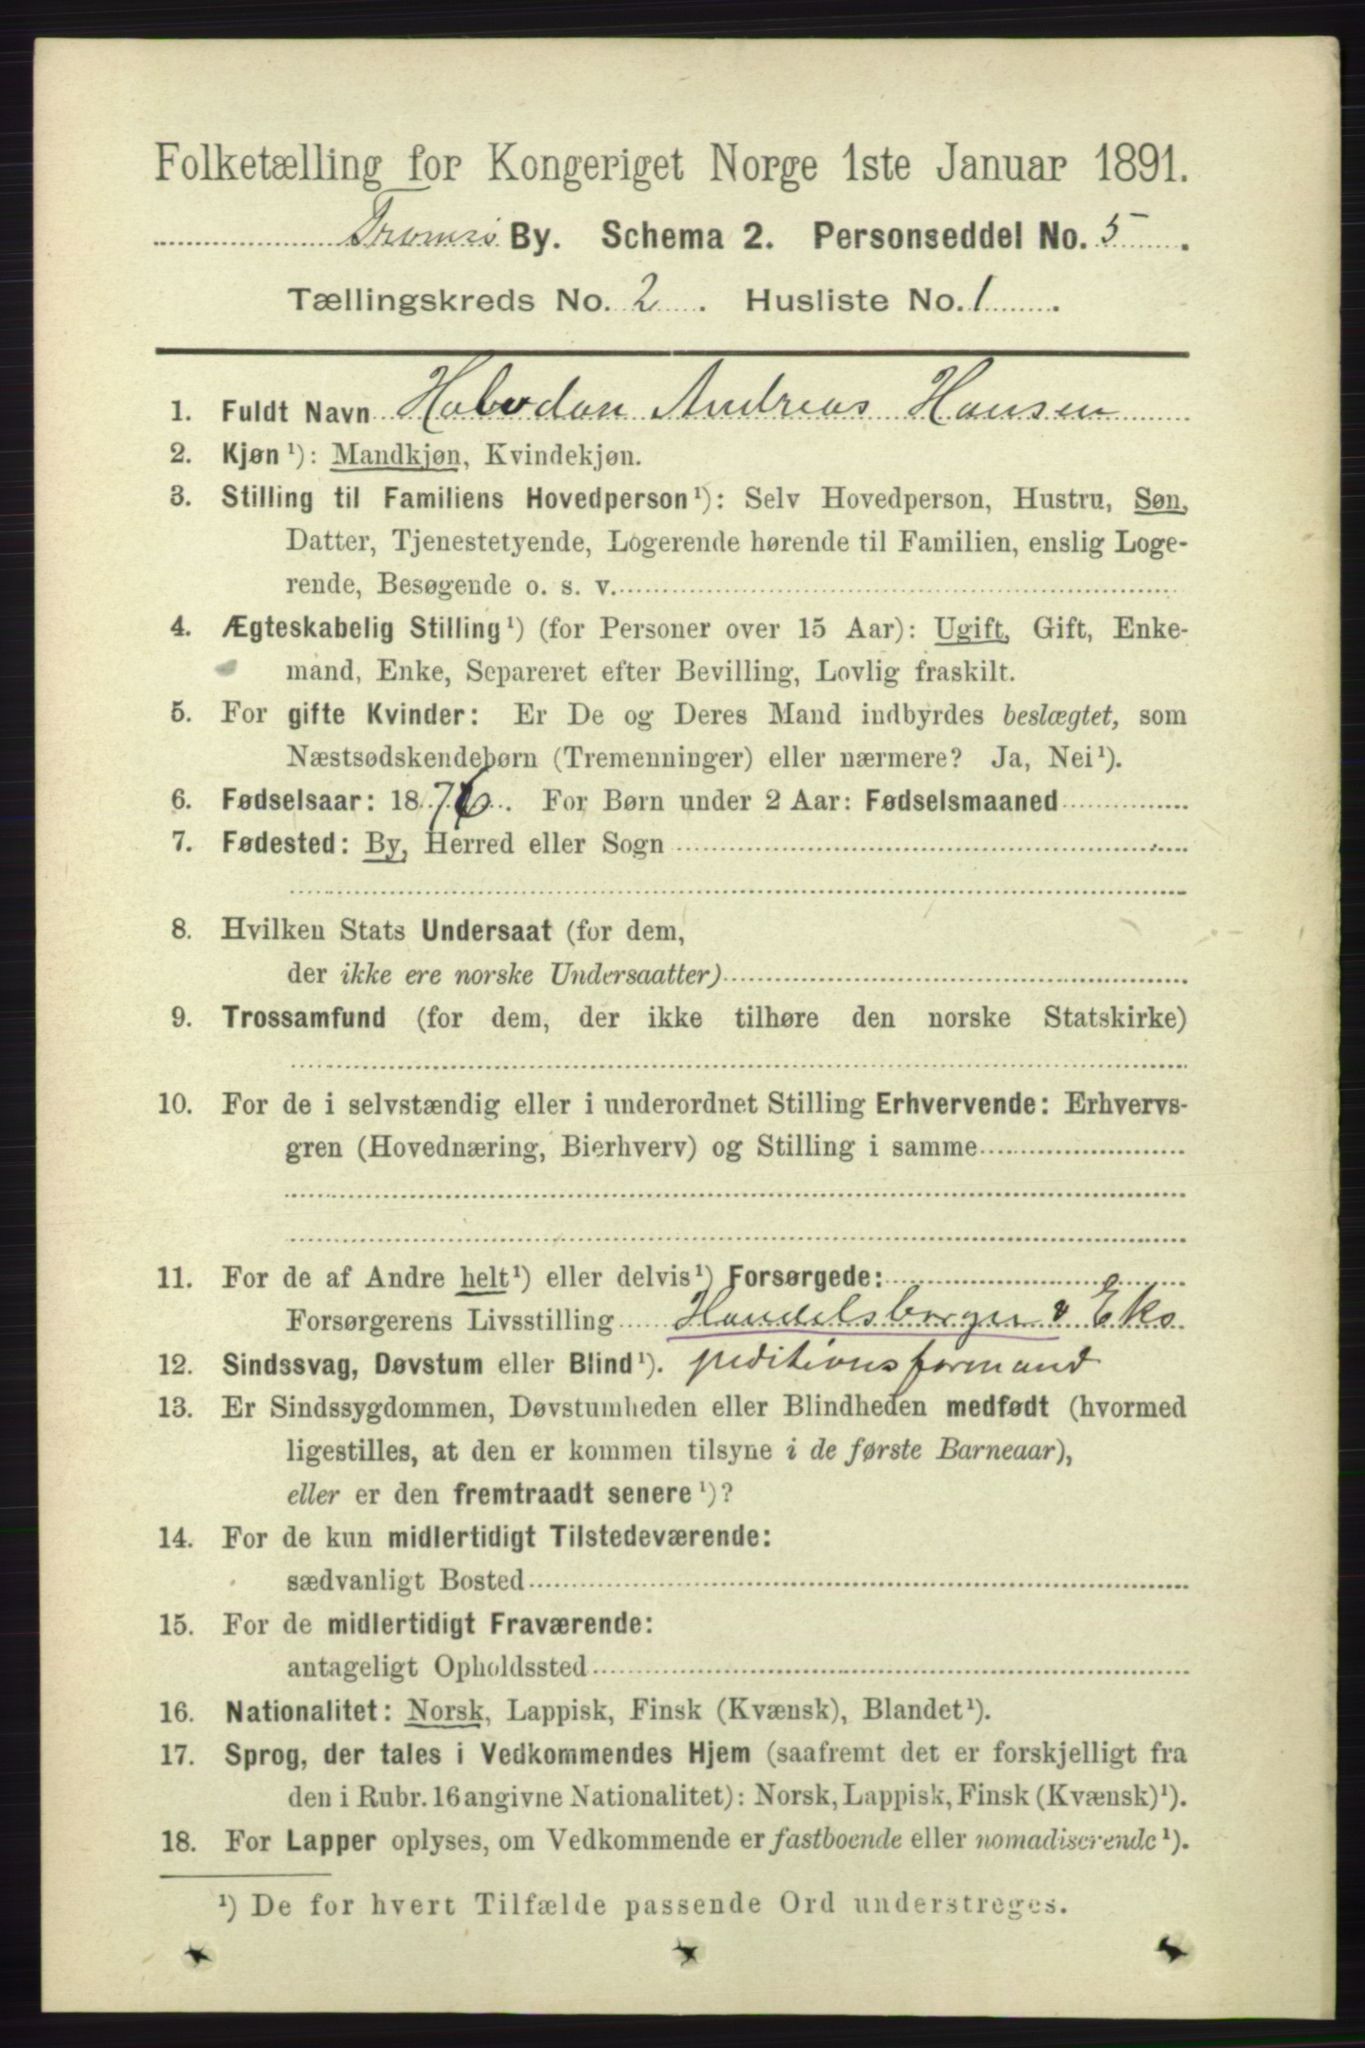 Folketælling for Kongeriget Norge 1ste Januar 1891.
Tromsø By. Schema 2. Personseddel No. 5.
Tællingskreds No. 2. Husliste No. 1.
1. Fuldt Navn Halvdan Andreas Hansen
2. Kjøn ¹): Mandkjøn, Kvindekjøn.
3. Stilling til Familiens Hovedperson ¹): Selv Hovedperson, Hustru, Søn,
Datter, Tjenestetyende, Logerende hørende til Familien, enslig Loge-
rende, Besøgende o. s. v.
4. Ægteskabelig Stilling ¹) (for Personer over 15 Aar): Ugift, Gift, Enke-
mand, Enke, Separeret efter Bevilling, Lovlig fraskilt.
5. For gifte Kvinder: Er De og Deres Mand indbyrdes beslægtet, som
Næstsødskendebørn (Tremenninger) eller nærmere? Ja, Nei ¹).
6. Fødselsaar: 1876. For Børn under 2 Aar: Fødselsmaaned
7. Fødested: By, Herred eller Sogn
8. Hvilken Stats Undersaat (for dem,
der ikke ere norske Undersaatter)
9. Trossamfund (for dem, der ikke tilhøre den norske Statskirke)
10. For de i selvstændig eller i underordnet Stilling Erhvervende: Erhvervs-
gren (Hovednæring, Bierhverv) og Stilling i samme
11. For de af Andre helt ¹) eller delvis ¹) Forsørgede:
Forsørgerens Livsstilling Handelsborger & Eks
12. Sindssvag, Døvstum eller Blind ¹). peditionsformand
13. Er Sindssygdommen, Døvstumheden eller Blindheden medfødt (hvormed
ligestilles, at den er kommen tilsyne i de første Barneaar),
eller er den fremtraadt senere ¹)?
14. For de kun midlertidigt Tilstedeværende:
sædvanligt Bosted
15. For de midlertidigt Fraværende:
antageligt Opholdssted
16. Nationalitet: Norsk, Lappisk, Finsk (Kvænsk), Blandet ¹).
17. Sprog, der tales i Vedkommendes Hjem (saafremt det er forskjelligt fra
den i Rubr. 16 angivne Nationalitet): Norsk, Lappisk, Finsk (Kvænsk) ¹).
18. For Lapper oplyses, om Vedkommende er fastboende eller nomadiserende ¹).
¹) De for hvert Tilfælde passende Ord understreges.